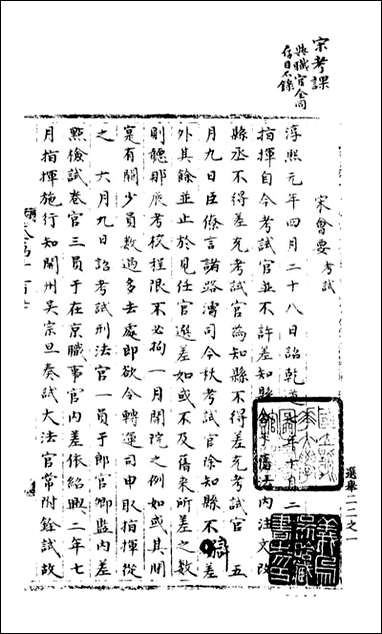 宋考課
與職官全同
存目不錄
宋會要 考試
淳熙元年四月二十八日詔乾道七年十月二
指揮自今考試官並不許差知縣令 舊 內注文改
縣丞不得差充考試官為知縣不得差充考試官 五
月九日臣僚言諸路漕司今秋考試官除知縣不 差
外其餘並止於見任官選差如或不及舊來所差之數
則聽那展考校程限不必拘一月開院之例如或其間
寔有闕少員數過多去處即欲令轉運司申取指揮從
之 六月九日詔考試刑法官一員于郎官卿監內差
點檢試卷官三員于在京職事官內差依紹興二年七
月指揮施行知開州吳宗旦奏試大法官常附銓試故
選舉二二之一